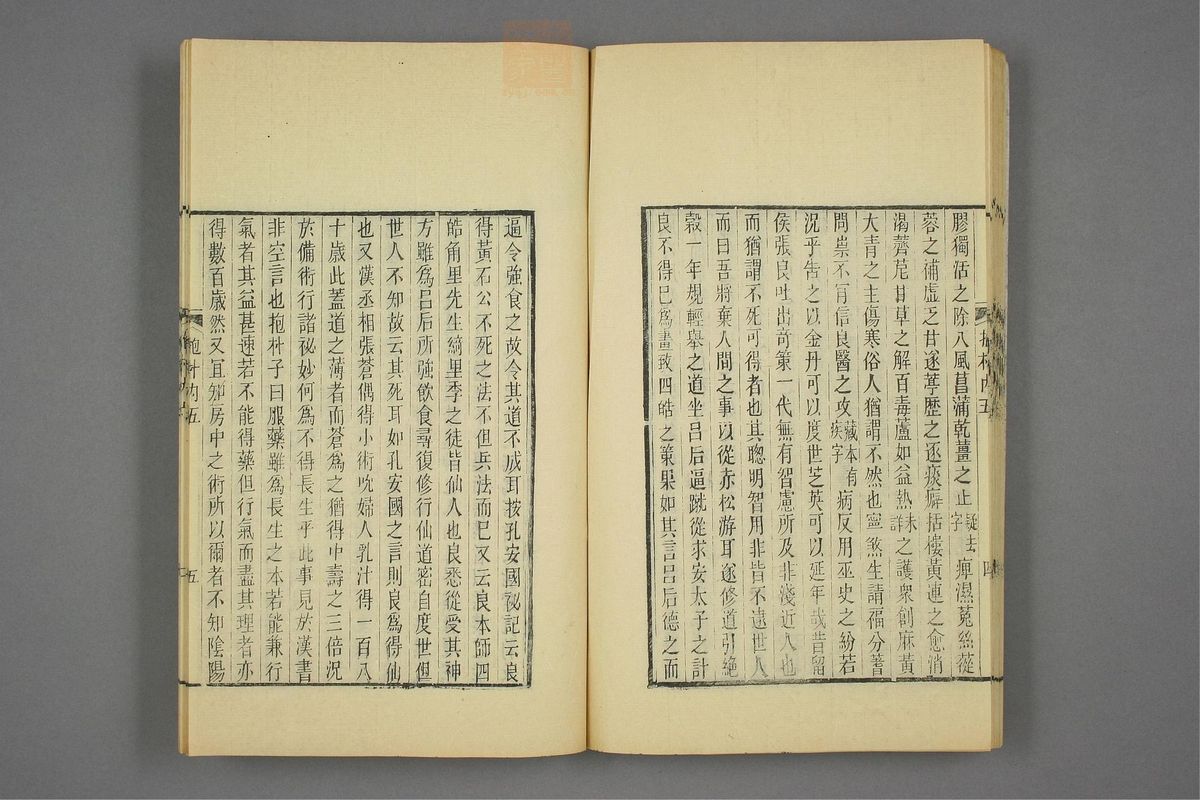 膠獨活之除八風菖蒲乾薑之止疑去字痺濕菟絲蓯
蓉之補虛乏甘遂葶歷之逐痰癖括樓黃連之愈消
渴薺苨甘草之解百毒蘆如益熱未詳之護衆創麻黃
大青之主傷寒俗人猶謂不然也寧煞生請福分蓍
問祟不肎信良醫之攻藏本有疾字病反用巫史之紛若
況乎告之以金丹可以度世芝英可以延年哉昔留
侯張良吐出奇策一代無有智慮所及非淺近人也
而猶謂不死可得者也其聰明智用非皆不遠世人
而曰吾將棄人間之事以從赤松游耳遂修道引絕
穀一年規輕舉之道坐呂后逼蹴從求安太子之計
良不得巳爲畫致四皓之策果如其言呂后德之而
四
逼令強食之故令其道不成耳按孔安國祕記云良
得黃石公不死之法不但兵法而巳又云良本師四
皓角里先生綺里季之徒皆仙人也良悉從受其神
方雖爲呂后所強飲食尋復修行仙道密自度世但
世人不知故云其死耳如孔安國之言則良爲得仙
也又漢丞相張蒼偶得小術吮婦人乳汁得一百八
十歲此蓋道之薄者而蒼爲之猶得中壽之三倍況
於備術行諸祕妙何爲不得長生乎此事見於漢書
非空言也抱朴子曰服藥雖爲長生之本若能兼行
氣者其益甚速若不能得藥但行氣而盡其理者亦
得數百歲然又宜知房中之術所以爾者不知陰陽
抱朴內五
五